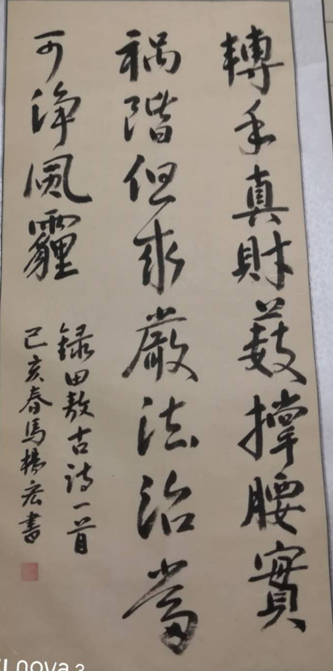 轉手真財薮撑腰實
祸階但求嚴法治當
可净風霾
録田敖古诗一首
己亥春馬楊宏書
nova 3